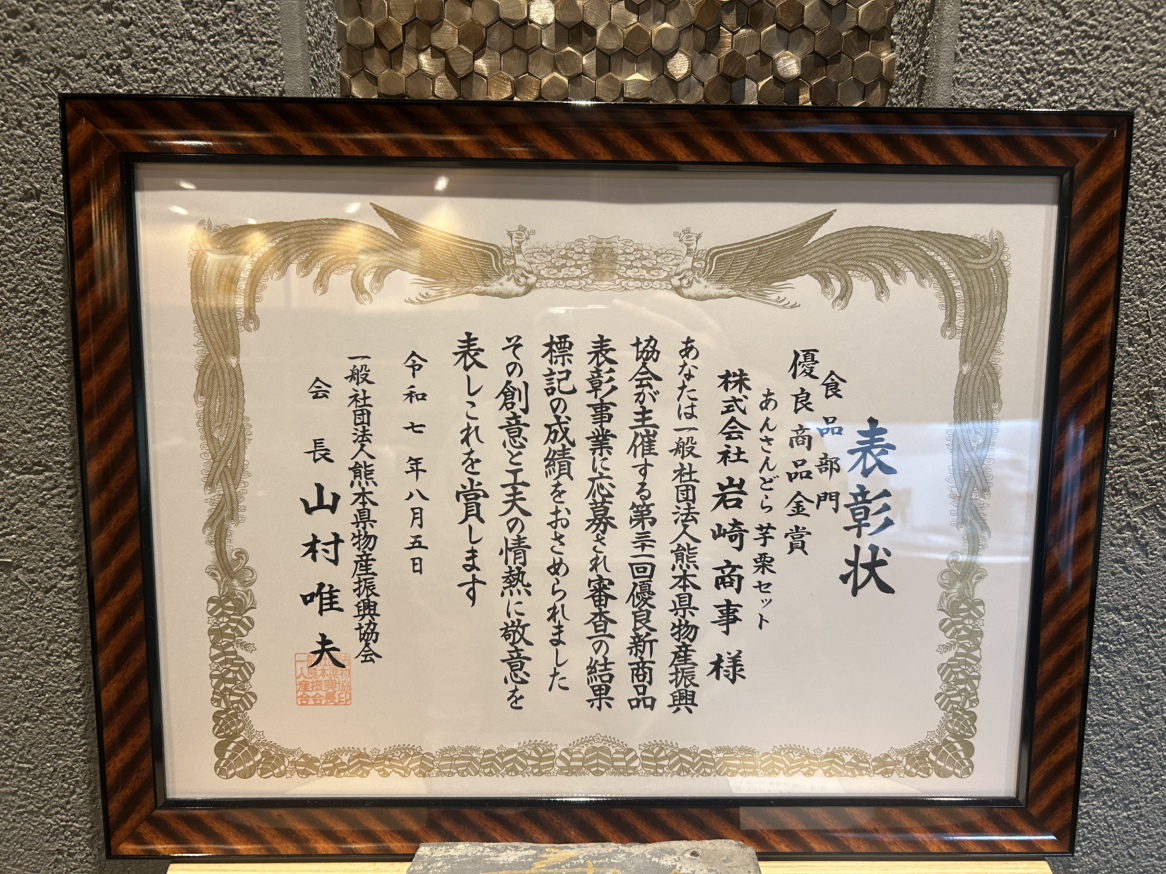 表彰状
食品部門
優良商品金賞
あんさんどら 芋栗セット
株式会社 岩崎商事 様
あなたは一般社団法人熊本県物産振興
協会が主催する第三一回優良新商品
表彰事業に応募され審査の結果
標記の成績をおさめられました
その創意と工夫の情熱に敬意を
表しこれを賞します
令和七年八月五日
一般社団法人熊本県物産振興協会
会長 山村唯夫